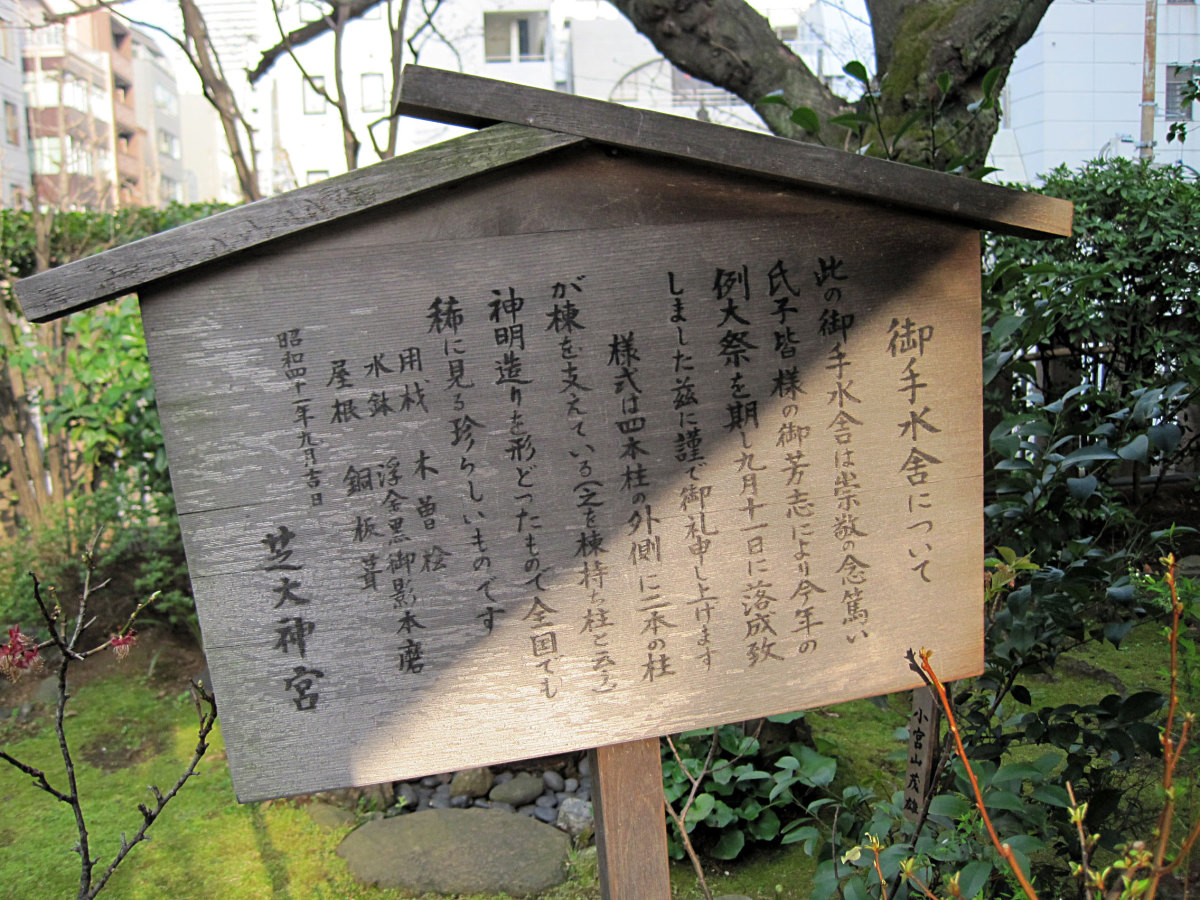 御手水舎について
此の御手水舎は崇敬の念篤い
氏子皆様の御芳志により今年の
例大祭を期し九月十一日に落成致
しました茲に謹で御礼申し上げます
様式は四本柱の外側に二本の柱
が棟を支えている(之を棟持ち柱と云う)
神明造りを形どったもので全国でも
稀に見る珍らしいものです
用材 木曽桧
水鉢 浮金黒御影本磨
屋根 銅板葺
昭和四十一年九月吉日
芝大神宮
小宮山茂雄